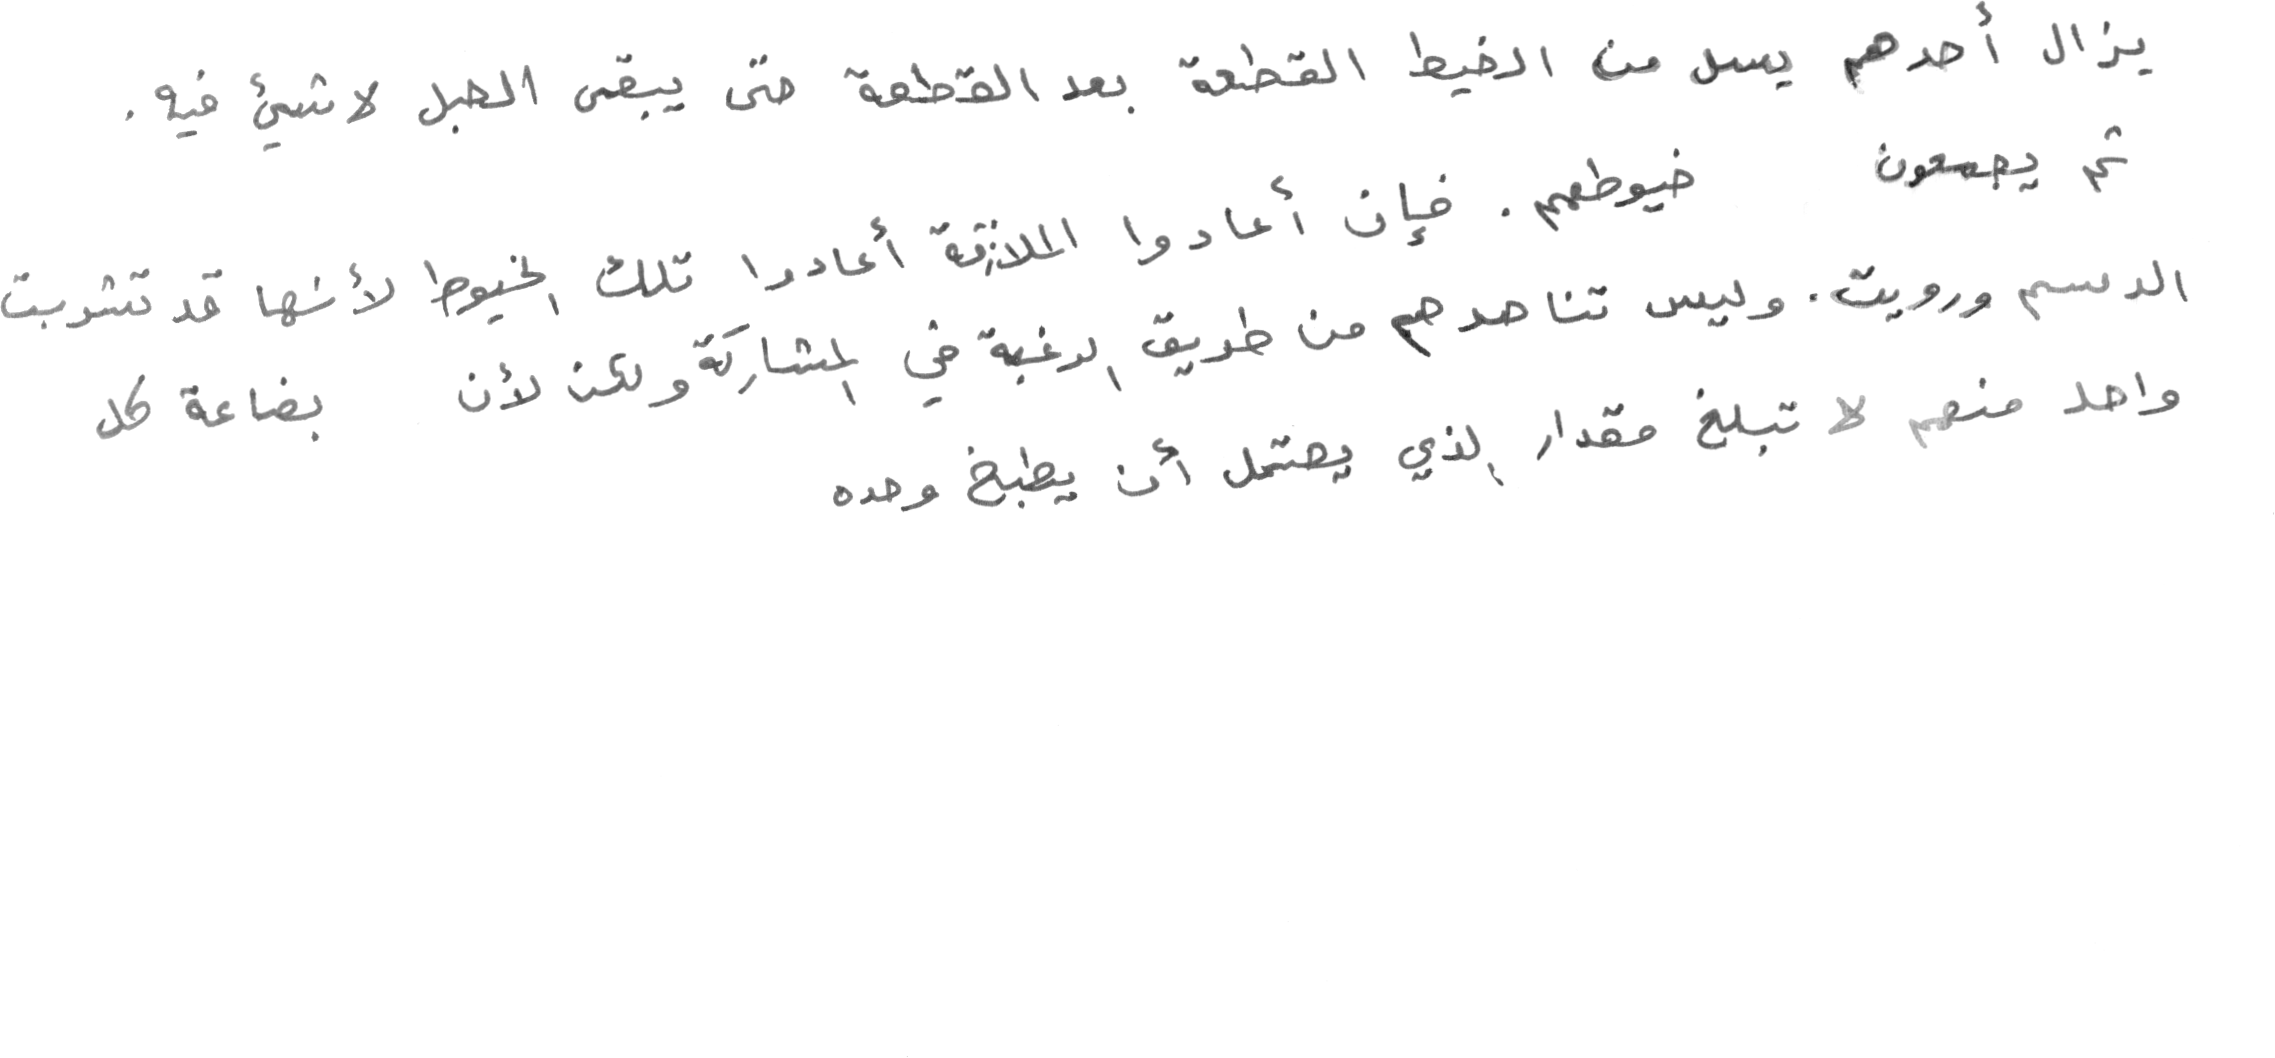 يزال أحدهم يسل من الخيط القطعة بعد القطعة حتى يبقى الحبل لا شيئ فيه .
ثم يجمعون خيوطهم . فإن أعادوا الملازقة أعادوا تلك الخيوط لأنها قد تشربت
الدسم ورويت . وليس تناهدهم من طريق الرغبة في المشاركة ولكن لأن بضاعة كل
واحد منهم لا تبلغ مقدار الذي يحتمل أن يطبخ وحده